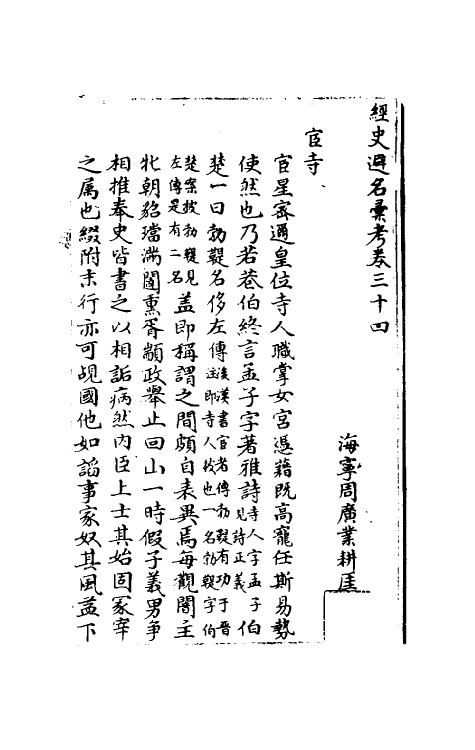 經史避名彙考卷三十四
海寧周廣業耕厓
宦寺
宦星密邇皇位寺人職掌女宮憑籍既高寵任斯易勢
使然也乃若巷伯終言孟子字著雅詩寺人字孟子見詩正義伯
楚一曰勃鞮名侈左傳後漢書宦者傳勃鞮有功于晉注即寺人披也一名勃鞮字伯
楚案披勃鞮見左傳是有二名蓋即稱謂之間頗自表異焉每觀闇主
牝朝貂璫滿闥熏胥顓政舉止回山一時假子義男爭
相推奉史皆書之以相詬病然內臣上士其始固冢宰
之属也綴附末行亦可覘國他如謟事家奴其風益下